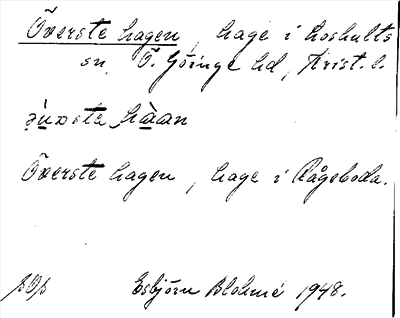 Överste hagen, hage i Loshults
sn, Ö. Göinge hd, Krist. l.
hàan
Överste hagen, hage i Rågeboda.
Esbjörn Blohmé 1948.